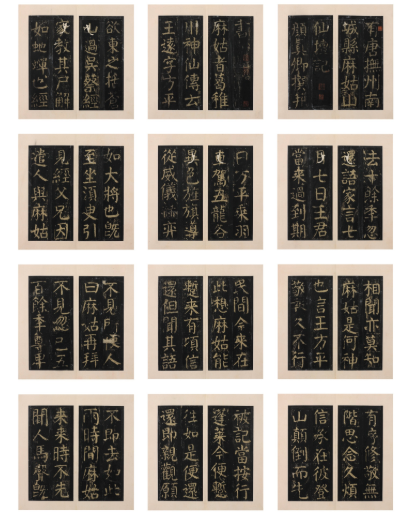 有唐撫州南
城縣麻姑山
仙壇記
顏真卿撰并
書
麻姑者葛稚
川神仙傳云
王遠字方平
欲東之括蒼
山過吳蔡經
家教其尸解
如蛇蟬也經
去十餘年忽
還語家言七
月七日王君
當來過到期
日方平乘羽
車駕五龍各
異色旌旗導
從威儀赫弈
如大將也既
至坐須臾引
見經父兄因
遣人與麻姑
相聞亦莫知
麻姑是何神
也言王方平
敬報久不行
民間今來在
此想麻姑能
暫來有頃信
還但聞其語
不見所使人
曰麻姑再拜
不見忽已五
百餘年尊卑
有序修敬無
階思念久煩
信承在彼登
山顛倒而先
被記當按行
蓬萊今便暫
往如是便還
還即親觀願
不即去如此
兩時間麻姑
來來時不先
聞人馬聲既